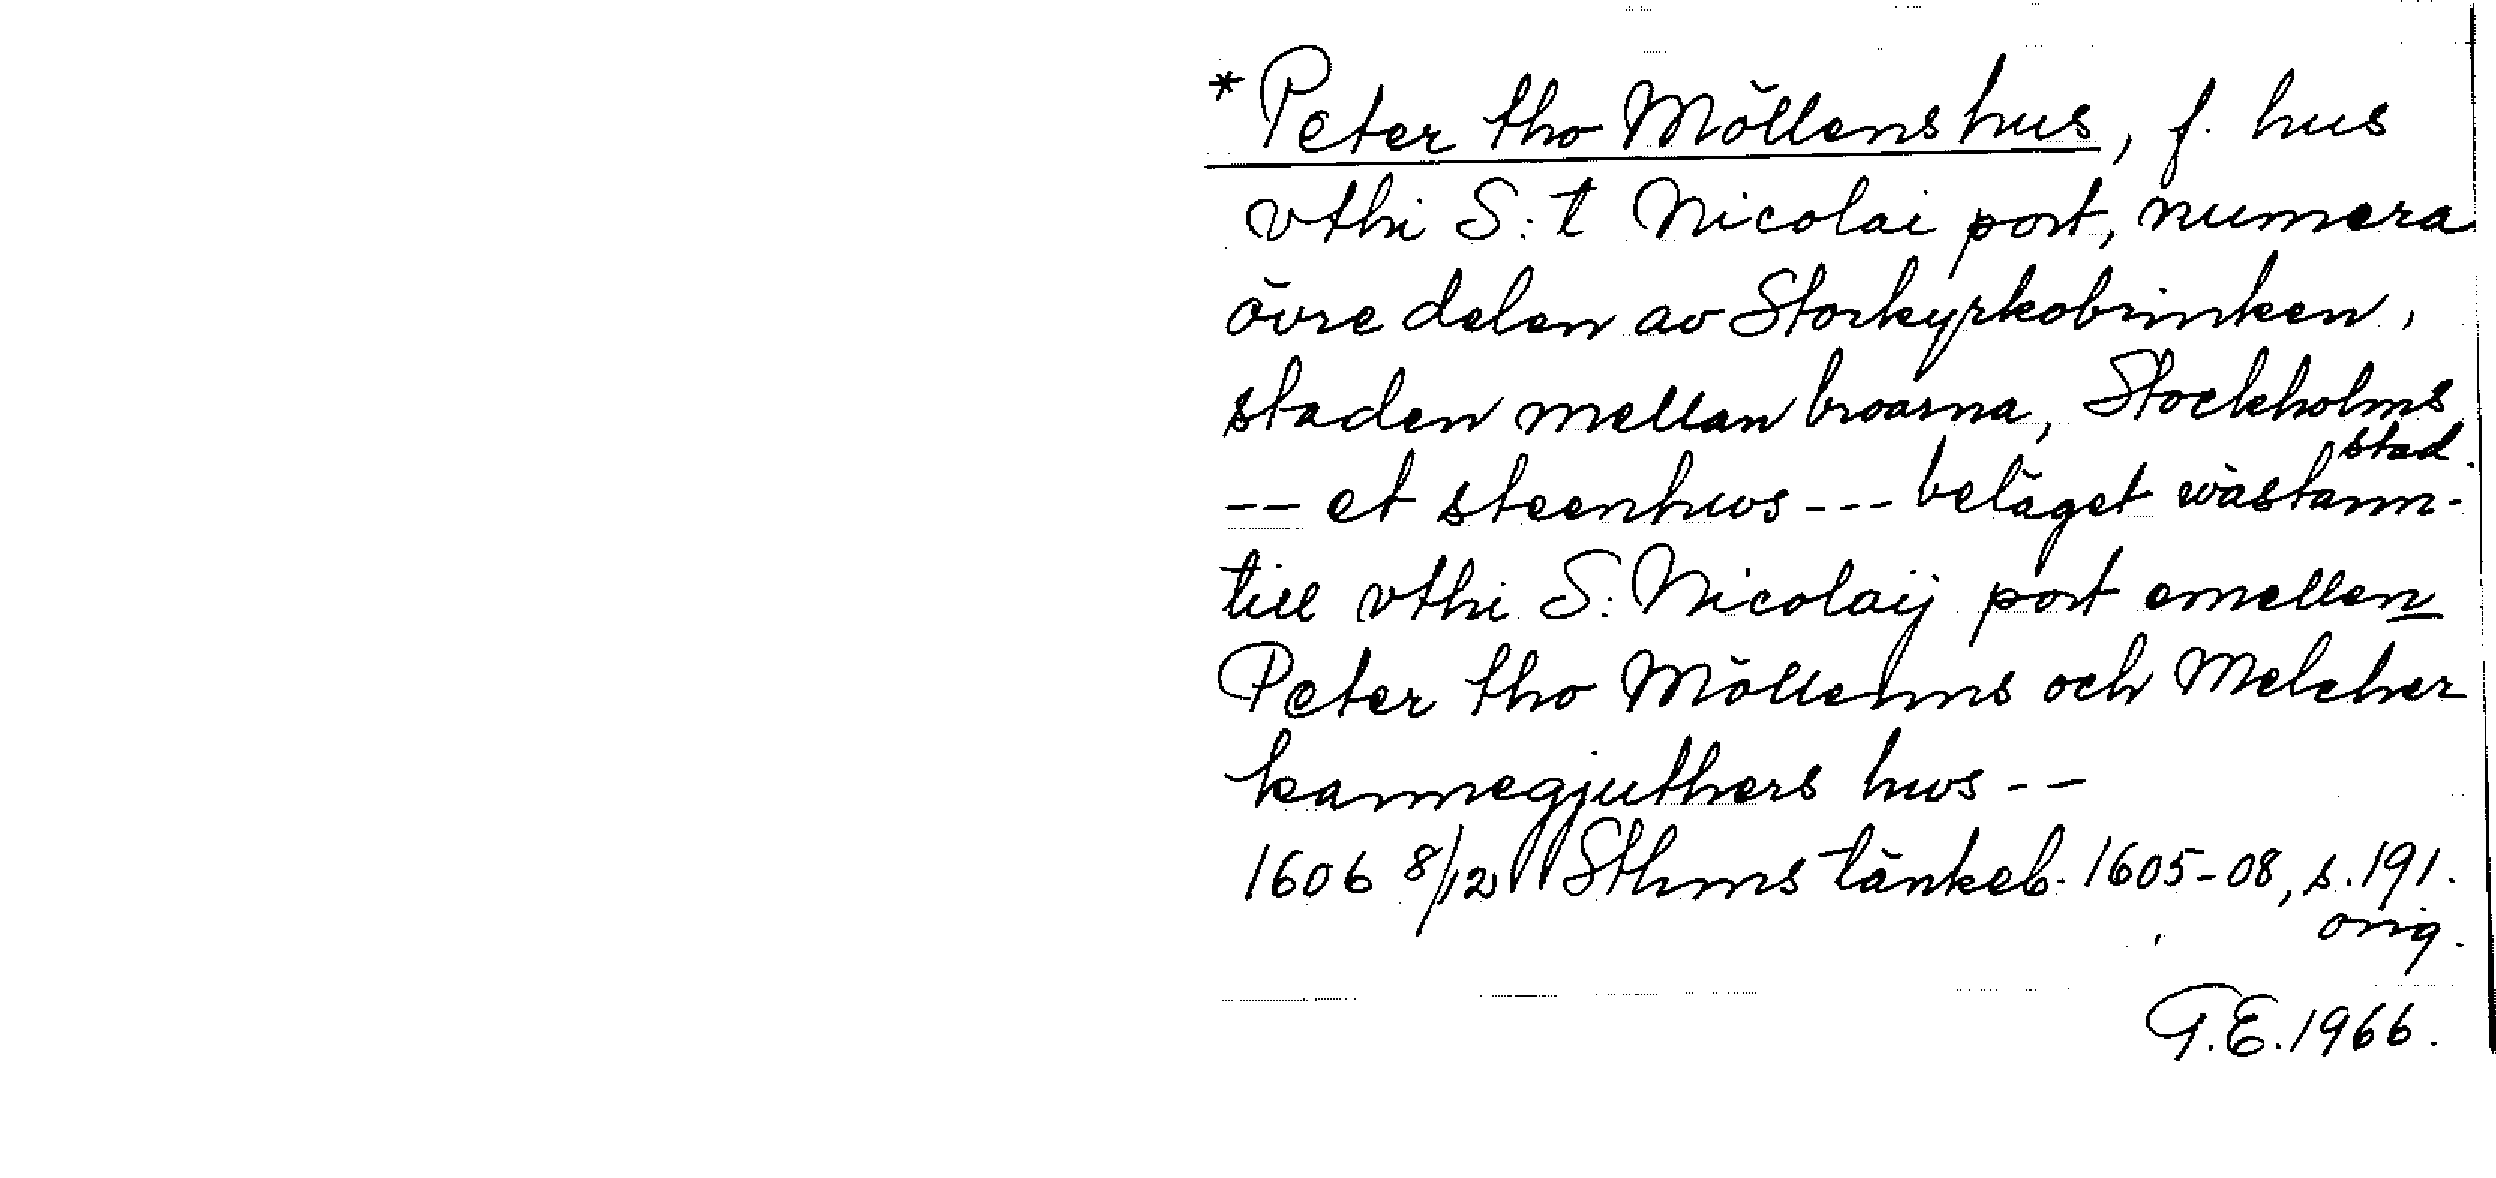 * Peter tho Möllens hus, f. hus
vthi S:t Nicolai port, numera
övre delen av Storkyrkobrinken,
staden mellan broarna, Stockholms
stad.
-- et steenhws --- beläget wästann-
till vthi S: Nicolaij port emellen
Peter tho Möllenns och Melcher
kannegjuthers hws --
1606 8/12 Sthms tänkeb. 1605-08, s. 191.
orig.
G.E. 1966.